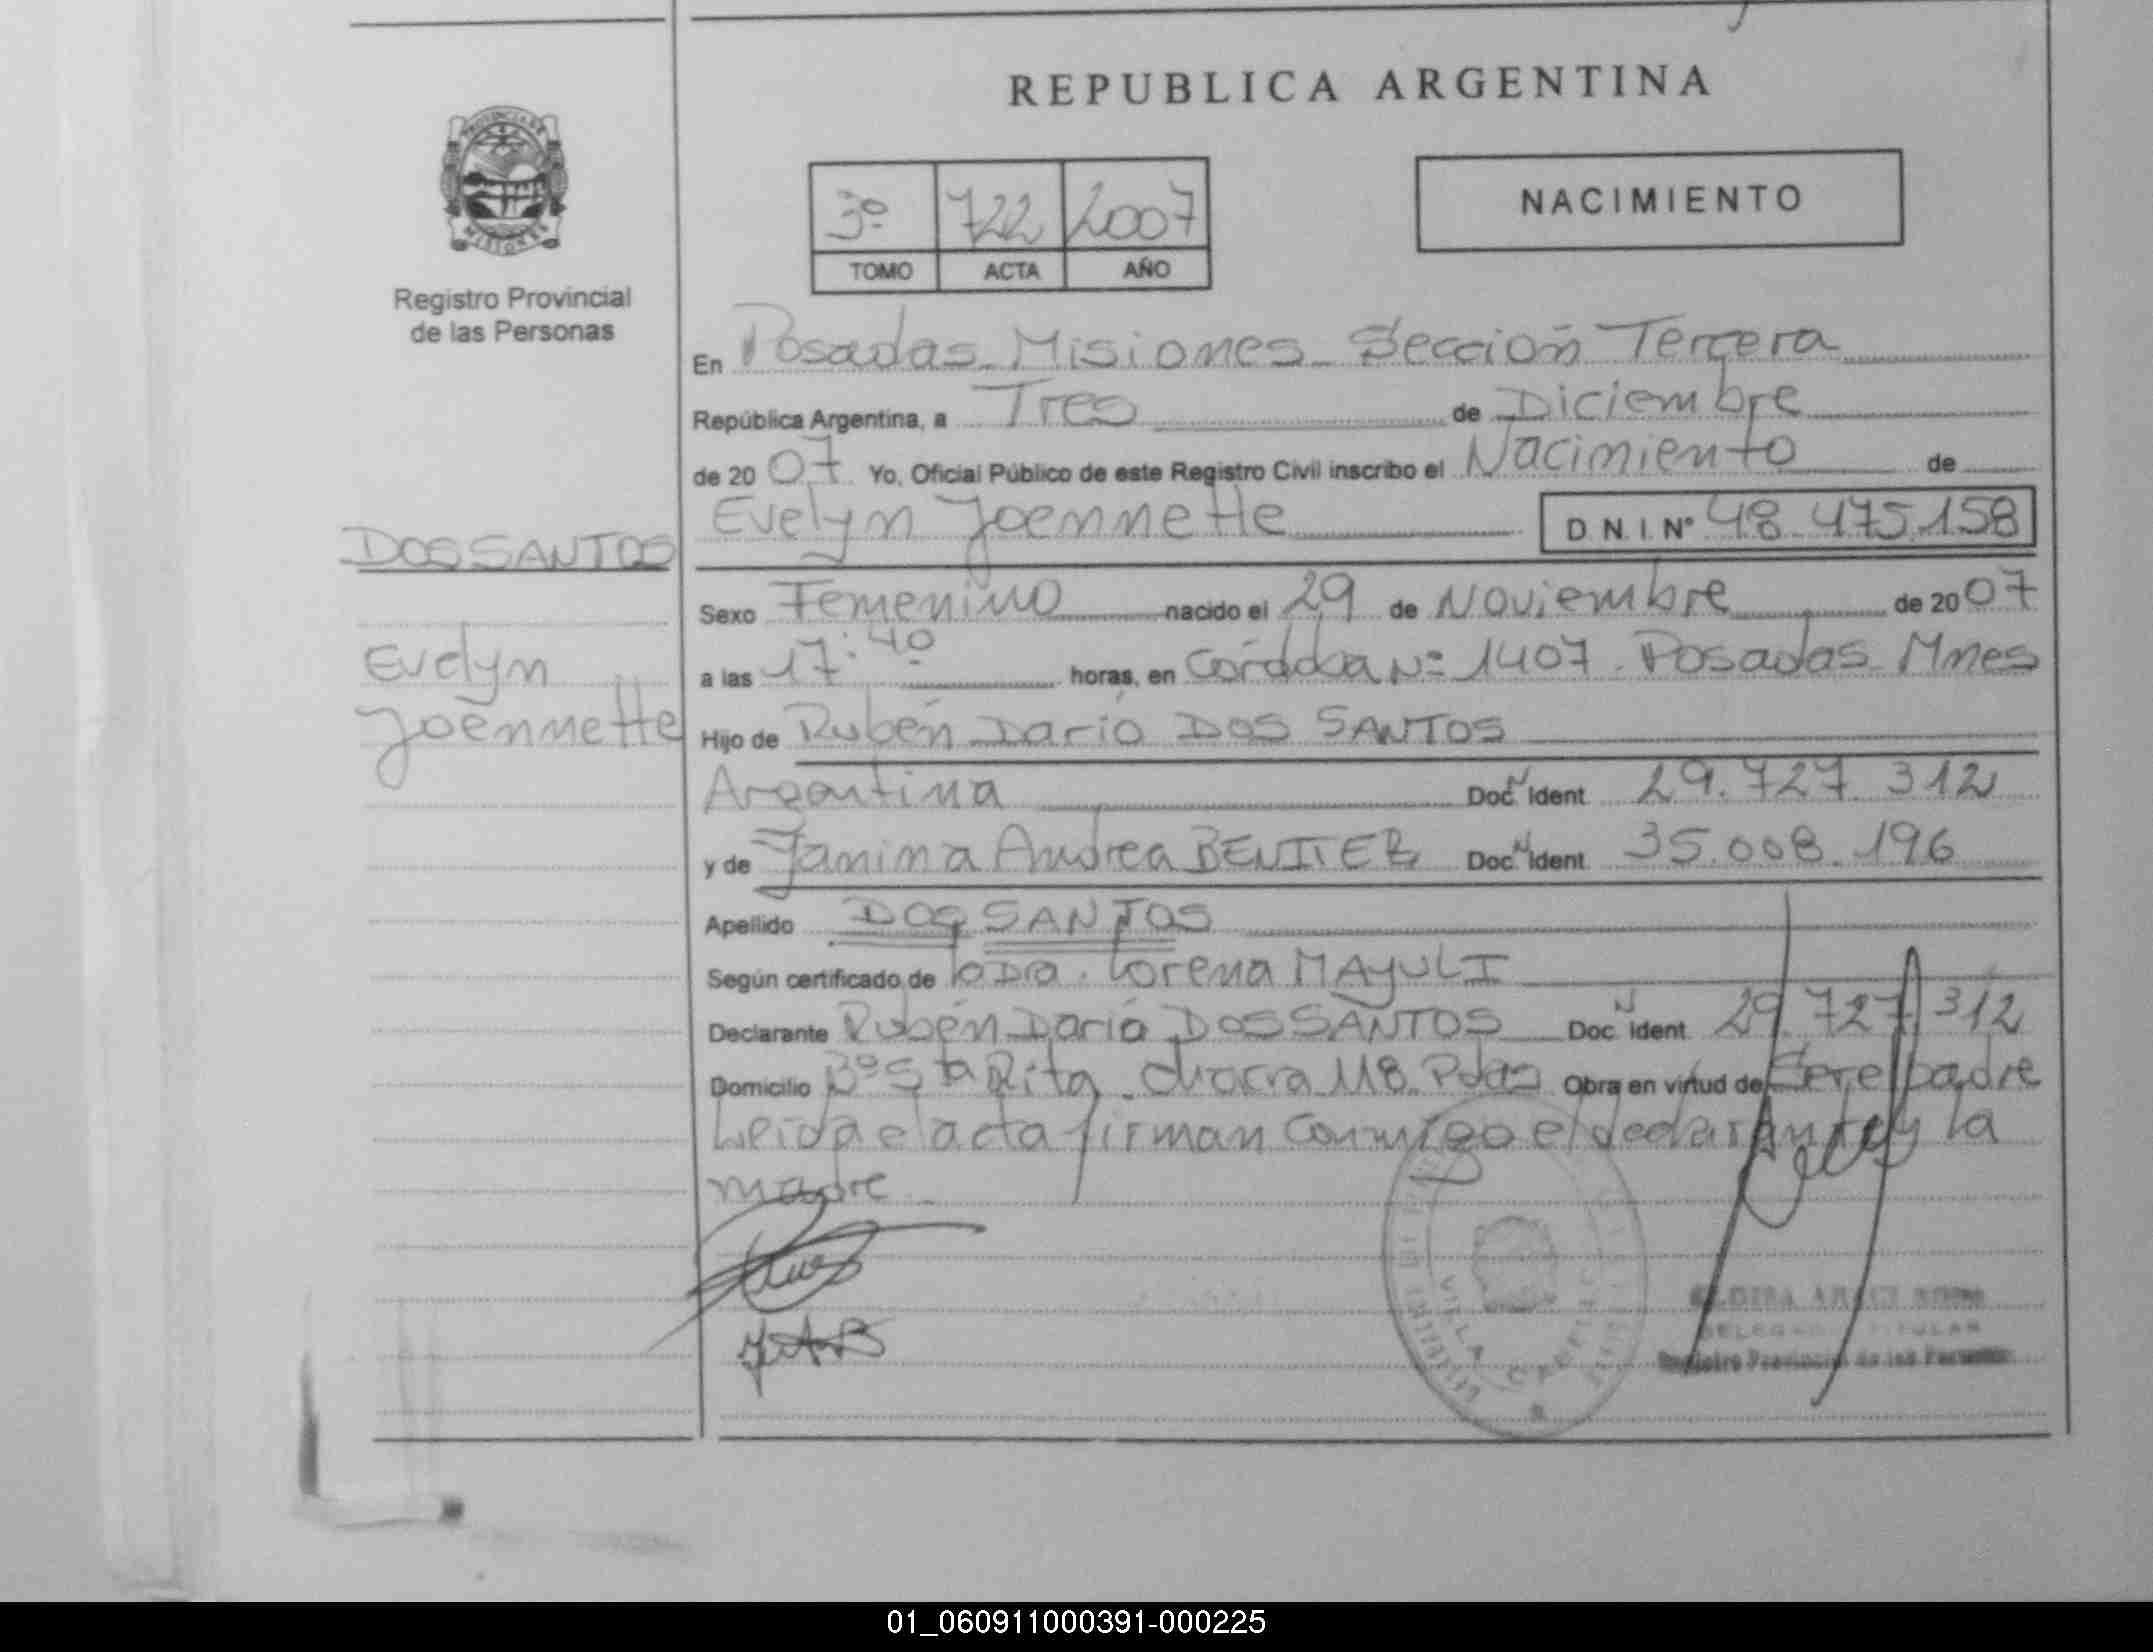 REPUBLICA ARGENTINA
PROVINCIA DE
MISIONES
Registro Provincial
de las Personas
3º 722 2007
TOMO ACTA AÑO
NACIMIENTO
En Posadas Misiones Sección Tercera
República Argentina, a Tres de Diciembre
de 20 07 Yo, Oficial Público de este Registro Civil inscribo el Nacimiento de
Evelyn Joennette D.N.I. Nº 48.475.158
DOS SANTOS
Evelyn
Joennette
Sexo Femenino nacido el 29 de Noviembre de 20 07
a las 17:40 horas, en Córdoba Nº 1407. Posadas Mnes
Hijo de Rubén Dario DOS SANTOS
Argentina Doc. N Ident. 29.727.312
y de Janina Andrea BENITEZ Doc. N Ident. 35.008.196
Apellido DOS SANTOS
Según certificado de Dra. Lorena MAYULI
Declarante Rubén Dario DOS SANTOS Doc. N Ident. 29.727.312
Domicilio Bº Sta Rita chacra 118. Pdas Obra en virtud de Ser el padre
Leida el acta firman conmigo el declarante y la
madre
JAB
VILLA CABELLO
Registro Provincial de las Personas
01_060911000391-000225